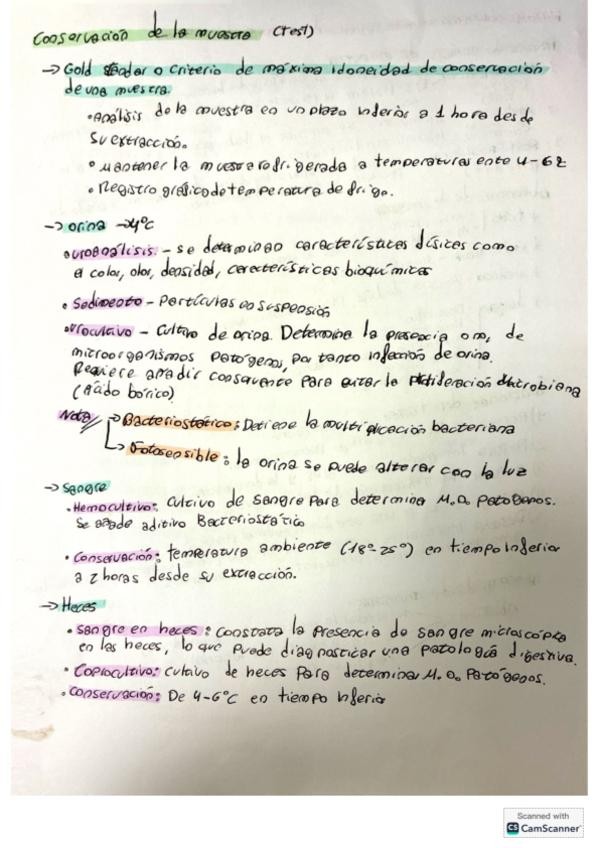 Conservación de la muestra (Test)
→ Gold Standar o Criterio de máxima idoneidad de conservación
de una muestra.
• Análisis de la muestra en un plazo inferior a 1 hora desde
su extracción.
• Mantener la muestra refrigerada a temperaturas ente 4-6º
• Registro gráfico de temperatura de frigo.
→ Orina → 4ºC
• uroanálisis. - se determinan características físicas como
el color, olor, densidad, características bioquímicas
• Sedimento - Partículas en suspensión
• urocultivo - Cultivo de orina. Determina la presencia o no, de
microorganismos patógenos, por tanto infección de orina.
Requiere añadir conservante para evitar la proliferación microbiana
(ácido bórico)
Nota → Bacteriostático: Detiene la multiplicación bacteriana
→ Fotosensible: la orina se puede alterar con la luz
→ Sangre
• Hemocultivo: cultivo de sangre para determina M.O. patógenos.
Se añade aditivo Bacteriostático
• Conservación: temperatura ambiente (18º-25º) en tiempo inferior
a 2 horas desde su extracción.
→ Heces
• Sangre en heces: Constata la presencia de sangre microscópica
en las heces, lo que puede diagnosticar una patología digestiva.
• Coprocultivo: cultivo de heces para determinar M.O. Patógenos.
• Conservación: De 4-6ºC en tiempo inferior
Scanned with
CS CamScanner